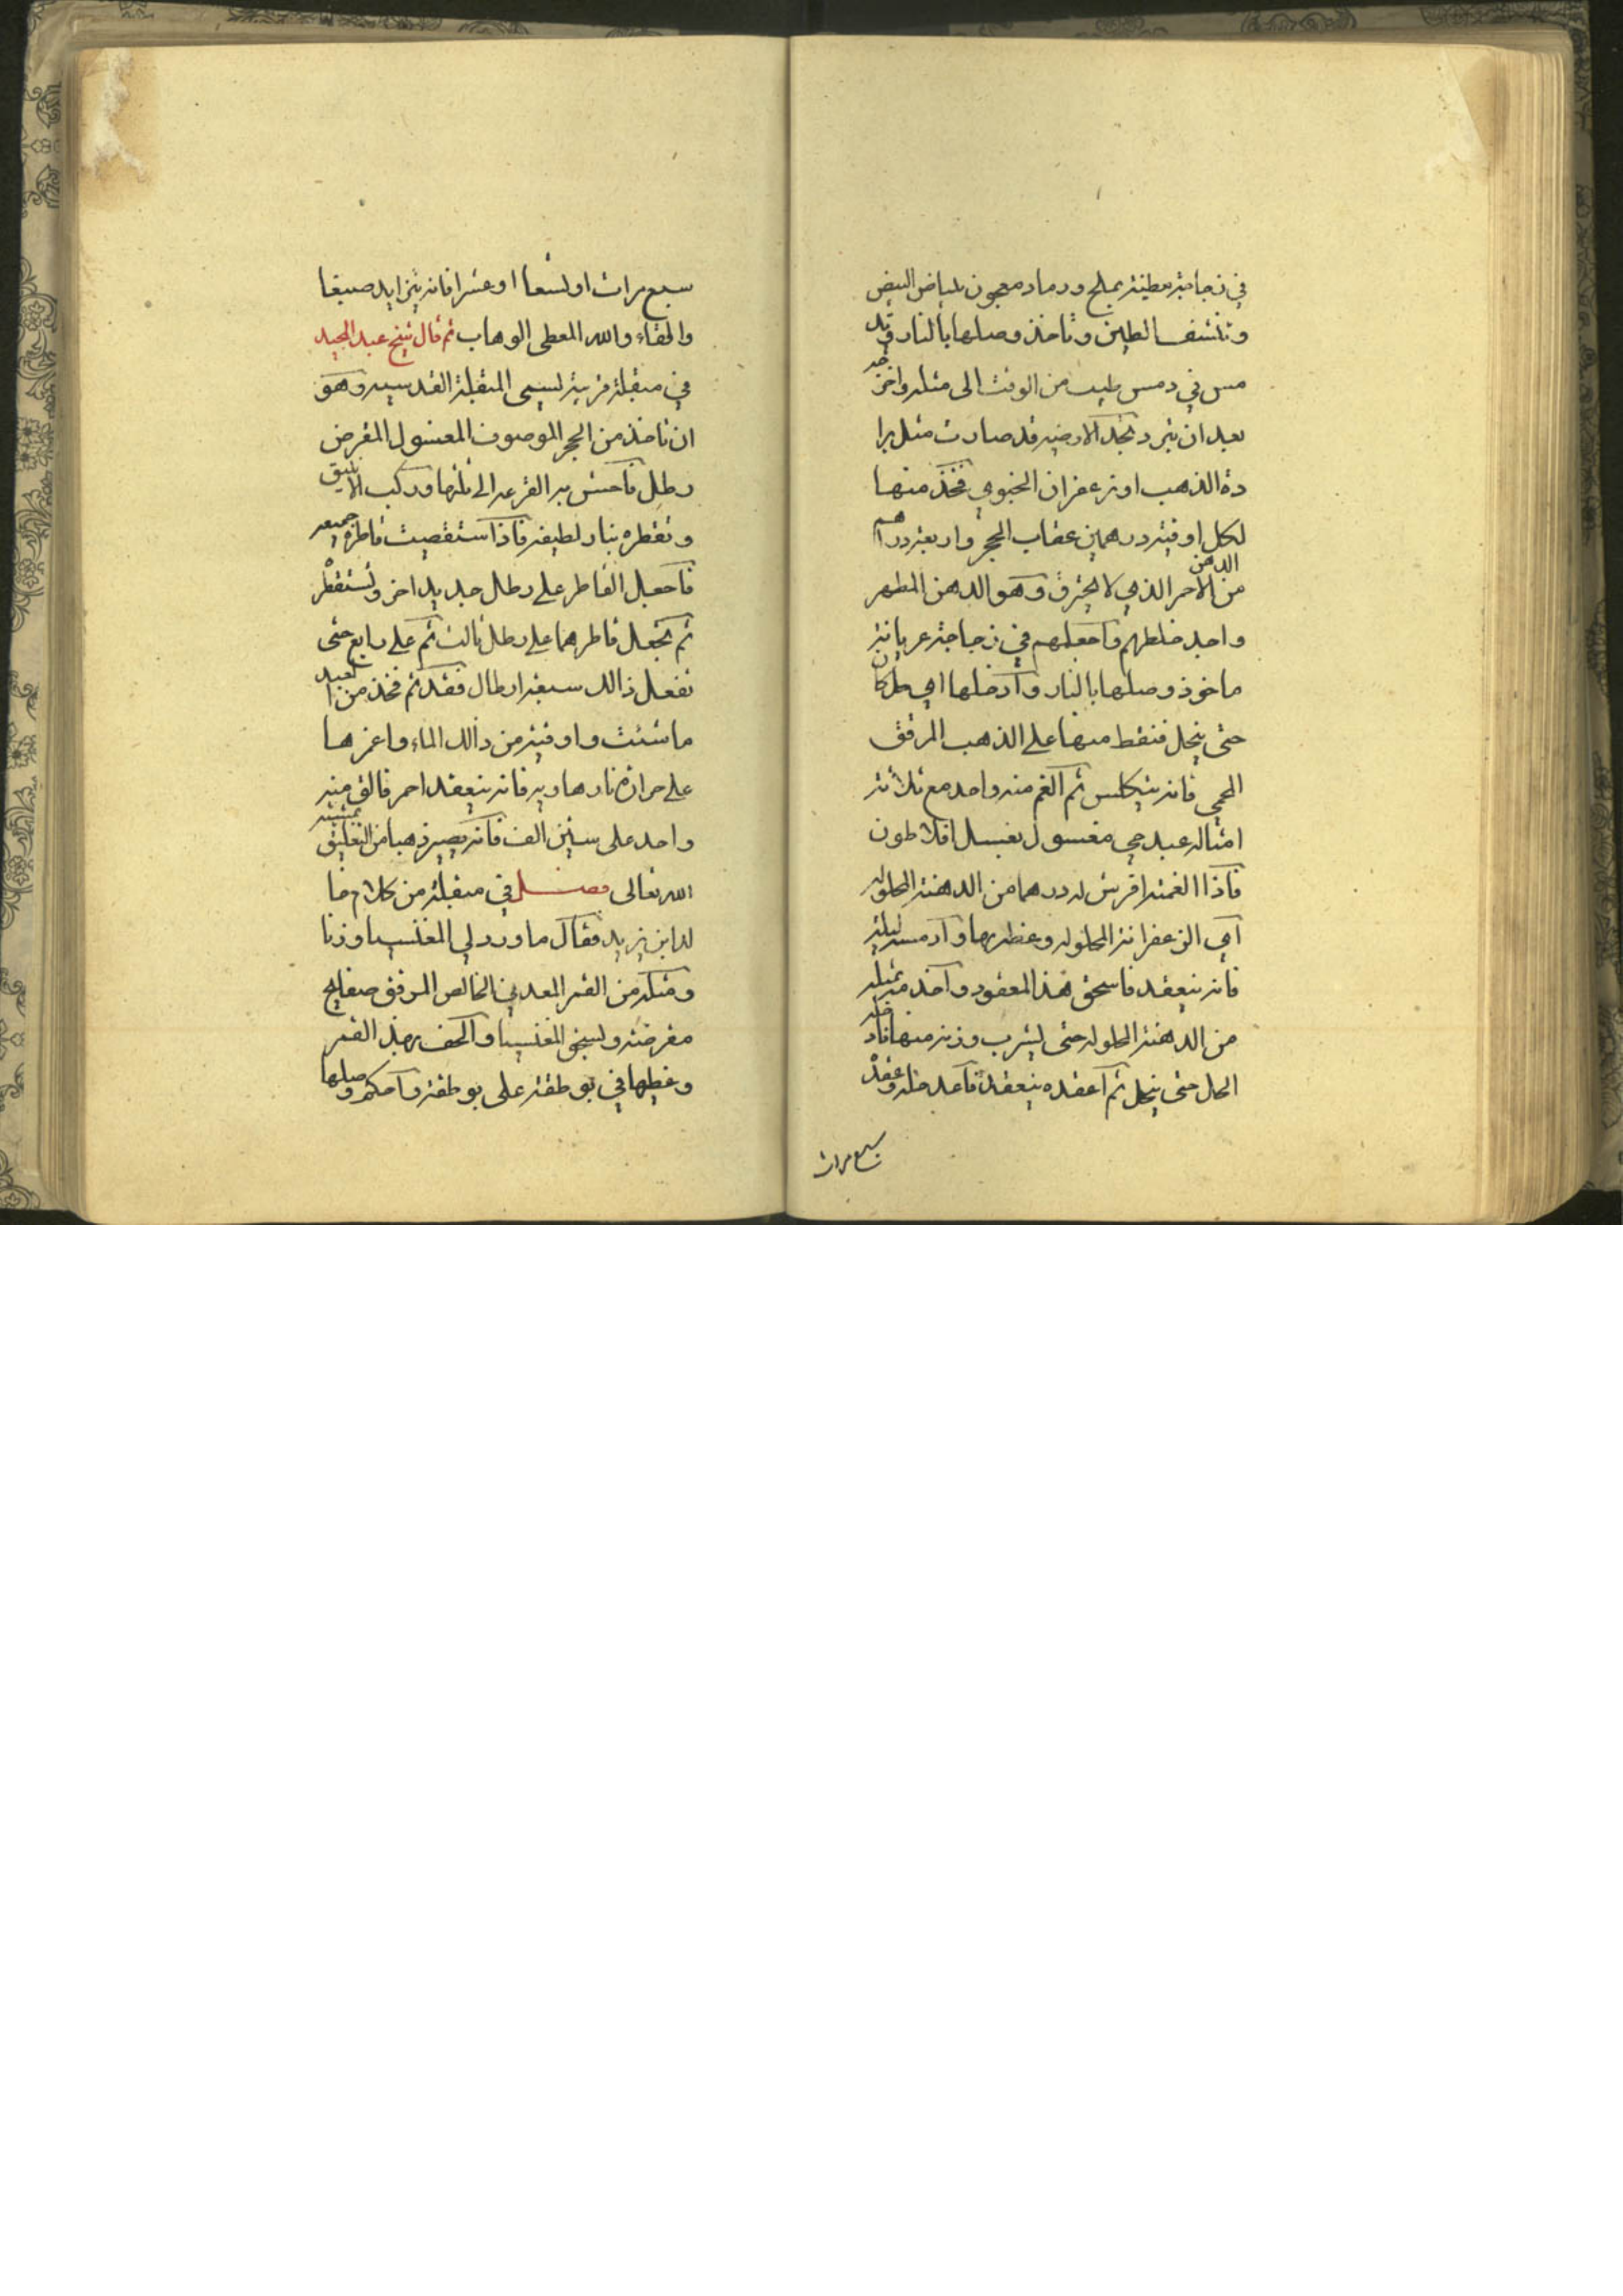 في زجاجة مطينة بملح ورماد معجون ببياض البيض
وتنشف الطين وتأخذ وصلها بالنار وتد
مس في دمس طيب من الوقت الى مثله واخر
بعد ان يبرد تجد الارضيه قد صارت مثل برا
دة الذهب او زعفران الخبوبي فخذ منها
لكل اوقية درهمين عقاب الحجر واربعة دراهم
من الدهن الاحمر الذي لا يحترق وهو الدهن المطهر
واحد خلطهم واجعلهم في زجاجة عريانة
ماخوذ وصلها بالنار وادخلها اي حل كان
حتى ينحل فنقط منها على الذهب المرقق
المحمي فانه يتكلس ثم الغم منه واحد مع ثلاثة
امثاله عبد حي مغسول بغسل افلاطون
فاذا الغمته افرش له درهما من الدهنة المحلوله
اي الزعفرانة المحلوله وغطه بها وادمسه ليلة
فانه ينعقد فاسحق هذا المعقود واخذ منه مثله
من الدهنة المحلوله حتى يشرب وزنه منها فاد خله
الحل حتى ينحل ثم اعقده ينعقد فأعد حله وعقده
سبع مرات
سبع مرات او تسعا او عشرا فانه يتزايد صبغا
والقاء والله المعطى الوهاب ثم قال شيخ عبد المجيد
في منقلة قريبة تسمى المنقلة القدسيه وهو
ان تاخذ من الحجر الموصوف المغسول المقرض
رطل فاحش به القرعه الى ثلثها وركب الانبيق
وتقطره بنار لطيفه فاذا استقصيت قاطره جميعه
فاجعل القاطر على رطل جديد اخر وتستقطر
ثم تجعل قاطرهما على رطل ثالث ثم على رابع حتى
تفعل ذالك سبعة ارطال فقد تم فخذ من العبد
ما شئت واوقية من ذالك الماء واغمرها
على حرارة نار هاديه فانه ينعقد احمر فالق منه
واحد على ستين الف فانه يصير ذهبا من التعليق بمشيئة
الله تعالى فصل في منقلة من كلام خا
لد ابن يزيد فقال ما ورد لي المغنسيا وزنا
ومثله من القمر المعدني الخالص المرقق صفايح
مقرضته ولسحق المغنسيا والحف بهذ القمر
وغطها في بوطقة على بوطقة واحكم وصلها